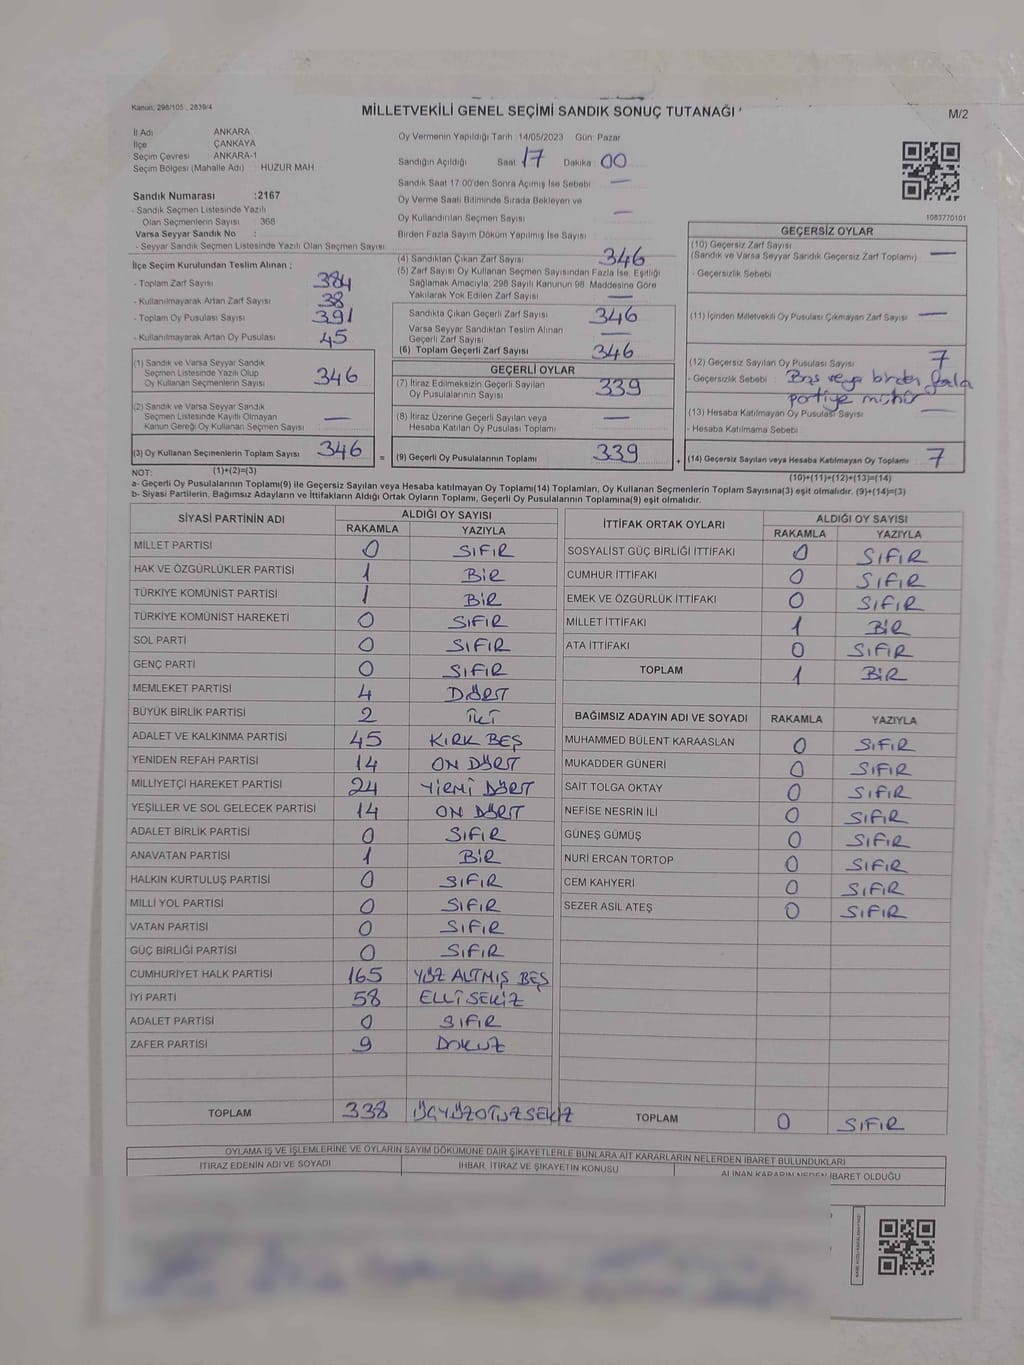 Kanun: 298/105 , 2839/4
MİLLETVEKİLİ GENEL SEÇİMİ SANDIK SONUÇ TUTANAĞI
M/2
İl Adı ANKARA
İlçe ÇANKAYA
Seçim Çevresi ANKARA-1
Seçim Bölgesi (Mahalle Adı) HUZUR MAH.
Sandık Numarası :2167
- Sandık Seçmen Listesinde Yazılı
Olan Seçmenlerin Sayısı : 368
Varsa Seyyar Sandık No :
- Seyyar Sandık Seçmen Listesinde Yazılı Olan Seçmen Sayısı:
Oy Vermenin Yapıldığı Tarih :14/05/2023 Gün: Pazar
Sandığın Açıldığı Saat 17 Dakika 00
Sandık Saat 17:00'den Sonra Açılmış İse Sebebi: —
Oy Verme Saati Bitiminde Sırada Bekleyen ve
Oy Kullandırılan Seçmen Sayısı —
Birden Fazla Sayım Döküm Yapılmış İse Sayısı :
1083770101
İlçe Seçim Kurulundan Teslim Alınan ;
- Toplam Zarf Sayısı 384
- Kullanılmayarak Artan Zarf Sayısı 38
- Toplam Oy Pusulası Sayısı 391
- Kullanılmayarak Artan Oy Pusulası 45
(1) Sandık ve Varsa Seyyar Sandık
Seçmen Listesinde Yazılı Olup
Oy Kullanan Seçmenlerin Sayısı 346
(2) Sandık ve Varsa Seyyar Sandık
Seçmen Listesinde Kaydı Olmayan
Kanun Gereği Oy Kullanan Seçmen Sayısı —
(3) Oy Kullanan Seçmenlerin Toplam Sayısı 346
(4) Sandıktan Çıkan Zarf Sayısı 346
(5) Zarf Sayısı Oy Kullanan Seçmen Sayısından Fazla İse, Eşitliği
Sağlamak Amacıyla, 298 Sayılı Kanunun 98. Maddesine Göre
Yakılarak Yok Edilen Zarf Sayısı —
Sandıkta Çıkan Geçerli Zarf Sayısı 346
Varsa Seyyar Sandıktan Teslim Alınan
Geçerli Zarf Sayısı —
(6) Toplam Geçerli Zarf Sayısı 346
GEÇERLİ OYLAR
(7) İtiraz Edilmeksizin Geçerli Sayılan
Oy Pusulalarının Sayısı 339
(8) İtiraz Üzerine Geçerli Sayılan veya
Hesaba Katılan Oy Pusulası Toplamı —
= (9) Geçerli Oy Pusulalarının Toplamı 339 +
GEÇERSİZ OYLAR
(10) Geçersiz Zarf Sayısı
(Sandık ve Varsa Seyyar Sandık Geçersiz Zarf Toplamı) —
- Geçersizlik Sebebi
(11) İçinden Milletvekili Oy Pusulası Çıkmayan Zarf Sayısı —
(12) Geçersiz Sayılan Oy Pusulası Sayısı 7
- Geçersizlik Sebebi : Boş veya birden fazla
partiye mühür
(13) Hesaba Katılmayan Oy Pusulası Sayısı —
- Hesaba Katılmama Sebebi
(14) Geçersiz Sayılan veya Hesaba Katılmayan Oy Toplamı 7
NOT: (1)+(2)=(3) (10)+(11)+(12)+(13)=(14)
a- Geçerli Oy Pusulalarının Toplamı(9) ile Geçersiz Sayılan veya Hesaba katılmayan Oy Toplamı(14) Toplamları, Oy Kullanan Seçmenlerin Toplam Sayısına(3) eşit olmalıdır. (9)+(14)=(3)
b- Siyasi Partilerin, Bağımsız Adayların ve İttifakların Aldığı Ortak Oyların Toplamı, Geçerli Oy Pusulalarının Toplamına(9) eşit olmalıdır.
SİYASİ PARTİNİN ADI ALDIĞI OY SAYISI
RAKAMLA YAZIYLA
MİLLET PARTİSİ 0 SIFIR
HAK VE ÖZGÜRLÜKLER PARTİSİ 1 BİR
TÜRKİYE KOMÜNİST PARTİSİ 1 BİR
TÜRKİYE KOMÜNİST HAREKETİ 0 SIFIR
SOL PARTİ 0 SIFIR
GENÇ PARTİ 0 SIFIR
MEMLEKET PARTİSİ 4 DÖRT
BÜYÜK BİRLİK PARTİSİ 2 İKİ
ADALET VE KALKINMA PARTİSİ 45 KIRK BEŞ
YENİDEN REFAH PARTİSİ 14 ON DÖRT
MİLLİYETÇİ HAREKET PARTİSİ 24 YİRMİ DÖRT
YEŞİLLER VE SOL GELECEK PARTİSİ 14 ON DÖRT
ADALET BİRLİK PARTİSİ 0 SIFIR
ANAVATAN PARTİSİ 1 BİR
HALKIN KURTULUŞ PARTİSİ 0 SIFIR
MİLLİ YOL PARTİSİ 0 SIFIR
VATAN PARTİSİ 0 SIFIR
GÜÇ BİRLİĞİ PARTİSİ 0 SIFIR
CUMHURİYET HALK PARTİSİ 165 YÜZ ALTMIŞ BEŞ
İYİ PARTİ 58 ELLİ SEKİZ
ADALET PARTİSİ 0 SIFIR
ZAFER PARTİSİ 9 DOKUZ
TOPLAM 338 ÜÇYÜZOTUZSEKİZ
İTTİFAK ORTAK OYLARI ALDIĞI OY SAYISI
RAKAMLA YAZIYLA
SOSYALİST GÜÇ BİRLİĞİ İTTİFAKI 0 SIFIR
CUMHUR İTTİFAKI 0 SIFIR
EMEK VE ÖZGÜRLÜK İTTİFAKI 0 SIFIR
MİLLET İTTİFAKI 1 BİR
ATA İTTİFAKI 0 SIFIR
TOPLAM 1 BİR
BAĞIMSIZ ADAYIN ADI VE SOYADI RAKAMLA YAZIYLA
MUHAMMED BÜLENT KARAASLAN 0 SIFIR
MUKADDER GÜNERİ 0 SIFIR
SAİT TOLGA OKTAY 0 SIFIR
NEFİSE NESRİN İLİ 0 SIFIR
GÜNEŞ GÜMÜŞ 0 SIFIR
NURİ ERCAN TORTOP 0 SIFIR
CEM KAHYERİ 0 SIFIR
SEZER ASİL ATEŞ 0 SIFIR
TOPLAM 0 SIFIR
OYLAMA İŞ VE İŞLEMLERİNE VE OYLARIN SAYIM DÖKÜMÜNE DAİR ŞİKAYETLERLE BUNLARA AİT KARARLARIN NELERDEN İBARET BULUNDUKLARI
İTİRAZ EDENİN ADI VE SOYADI İHBAR, İTİRAZ VE ŞİKAYETİN KONUSU ALINAN KARARIN NEDEN İBARET OLDUĞU